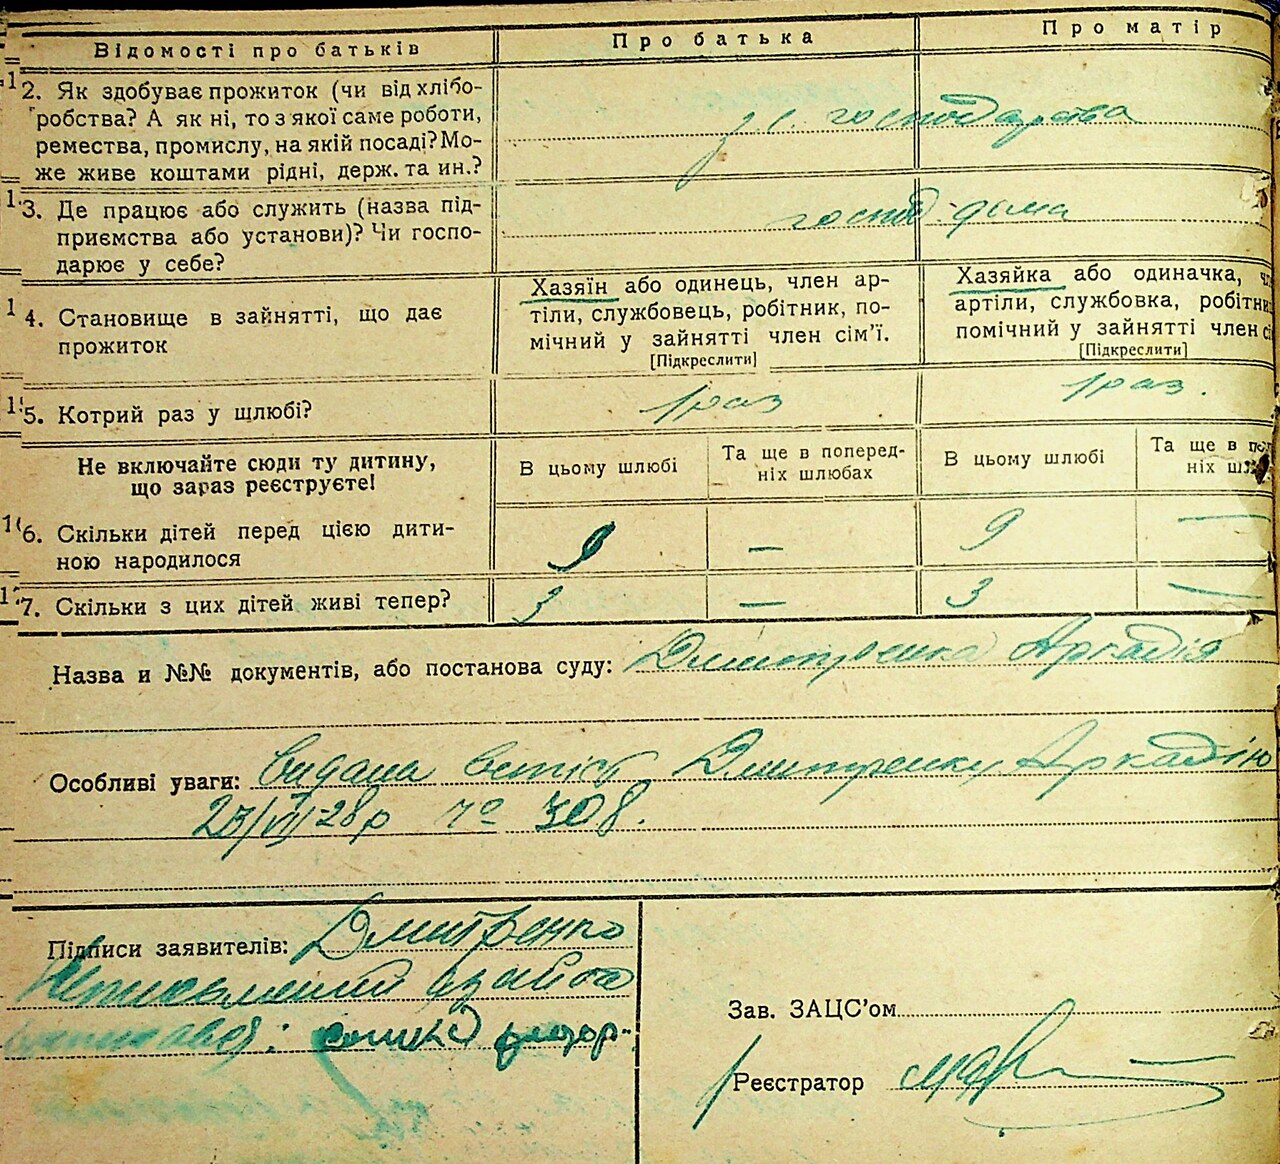 Відомості про батьків
Про батька
Про матір
12. Як здобуває прожиток (чи від хлібо-
робства? А як ні, то з якої саме роботи,
ремества, промислу, на якій посаді? Мо-
же живе коштами рідні, держ. та ин.?
з с. господарства
13. Де працює або служить (назва під-
приємства або установи)? Чи госпо-
дарює у себе?
господ. дома
14. Становище в зайнятті, що дає
прожиток
Хазяїн або одинець, член ар-
тіли, службовець, робітник, по-
мічний у зайнятті член сім'ї.
[Підкреслити]
Хазяйка або одиначка,
артіли, службовка,
помічний у зайнятті член
[Підкреслити]
15. Котрий раз у шлюбі?
1 раз
1 раз.
Не включайте сюди ту дитину,
що зараз реєструєте!
В цьому шлюбі
Та ще в поперед-
ніх шлюбах
В цьому шлюбі
Та ще в
ніх
16. Скільки дітей перед цією дити-
ною народилося
9
—
9
—
17. Скільки з цих дітей живі тепер?
3
—
3
—
Назва и №№ документів, або постанова суду: Дмитренка Аркадія
Особливі уваги: видана Дмитренку Аркадію
23/VII-28р № 308.
Підписи заявителів: Дмитренко
Неписьменний
Зав. ЗАЦС'ом
Реєстратор